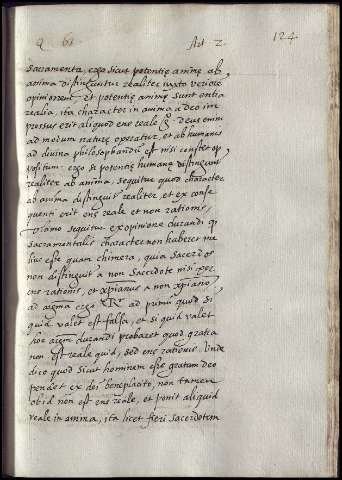 Q. 63 Art 2. 124
Sacramenta, ergo sicut potentię animę ab
anima distinguntur realiter iuxta veriorẽ
opinionem et potentię animę sunt entia
realia, ita character in anima a deo im
pressus erit aliquod ens reale deus enim
ad modum naturę operatur, et ab humanis
ad divina philosophandũ est nisi constet op
positum: ergo si potentię humanę distinguunt
realiter ab anima, sequitur quod character
ab anima distinguit realiter, et ex conse
quenti erit ens reale et non rationis,
primo sequitur ex opinione durandi qd
sacramentalis character non haberet me
lius esse quam chimera, quia Sacerdos
non distinguit a non Sacerdote nisi per
ens rationis, et xpianus a non xpiano,
ad argma ergo ad primũ quod si
quid valet est falsa, et si quid valet
hoc argm durandi probaret quod gratia
non est reale quid, sed ens rationis. Unde
dico quod sicut hominem esse gratum deo
pendet ex dei beneplacito, non tamen
ob id non est ens reale, et ponit aliquid
reale in anima, ita licet fieri sacerdotem